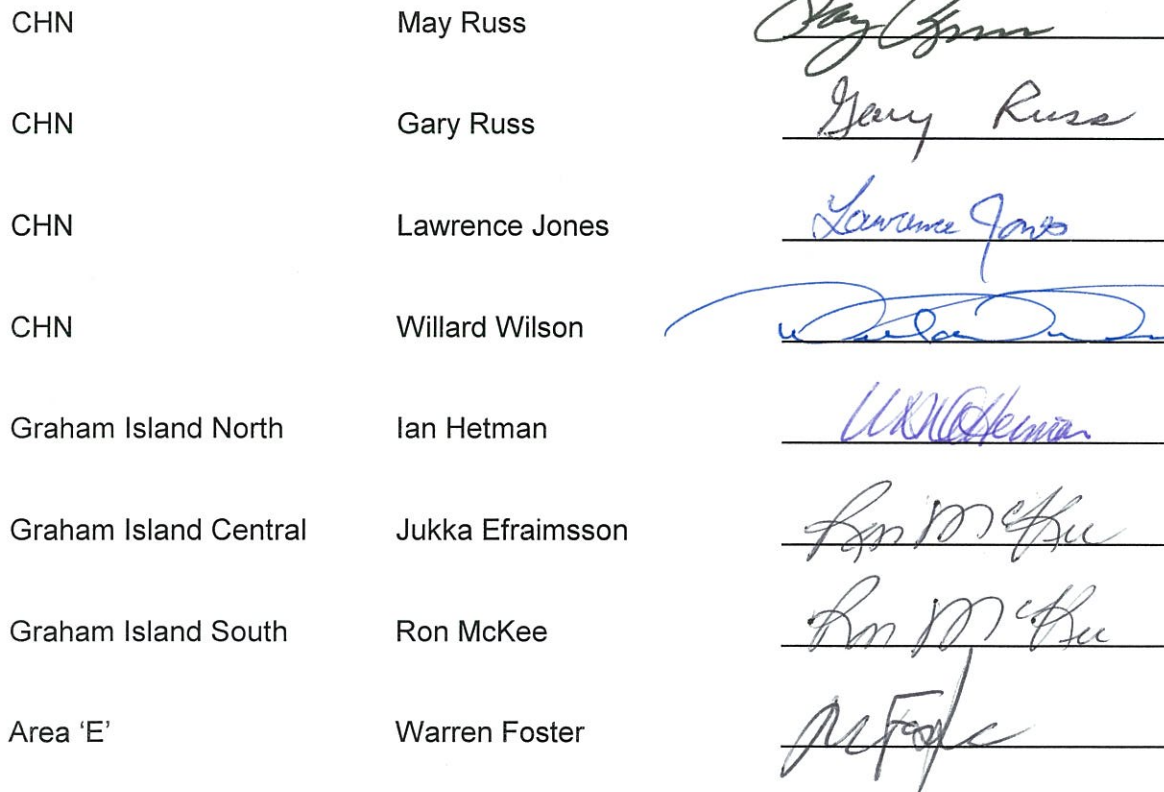 CHN May Russ
CHN Gary Russ Gary Russ
CHN Lawrence Jones Lawrence Jones
CHN Willard Wilson
Graham Island North Ian Hetman
Graham Island Central Jukka Efraimsson Ron McKee
Graham Island South Ron McKee Ron McKee
Area ‘E’ Warren Foster